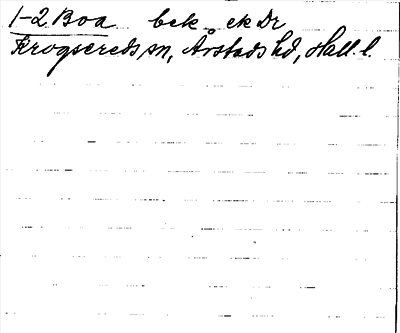 1-2. Boa bek. ek Dr
Krogsereds sn, Årstads hd, Hall. l.